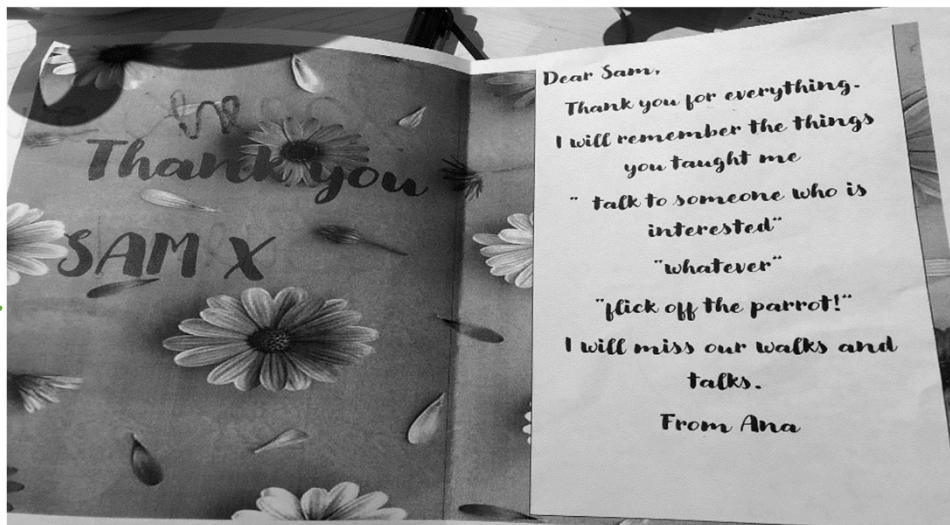 Thank you
SAM X
Dear Sam,
Thank you for everything.
I will remember the things
you taught me
" talk to someone who is
interested"
"whatever"
"flick off the parrot!"
I will miss our walks and
talks.
From Ana